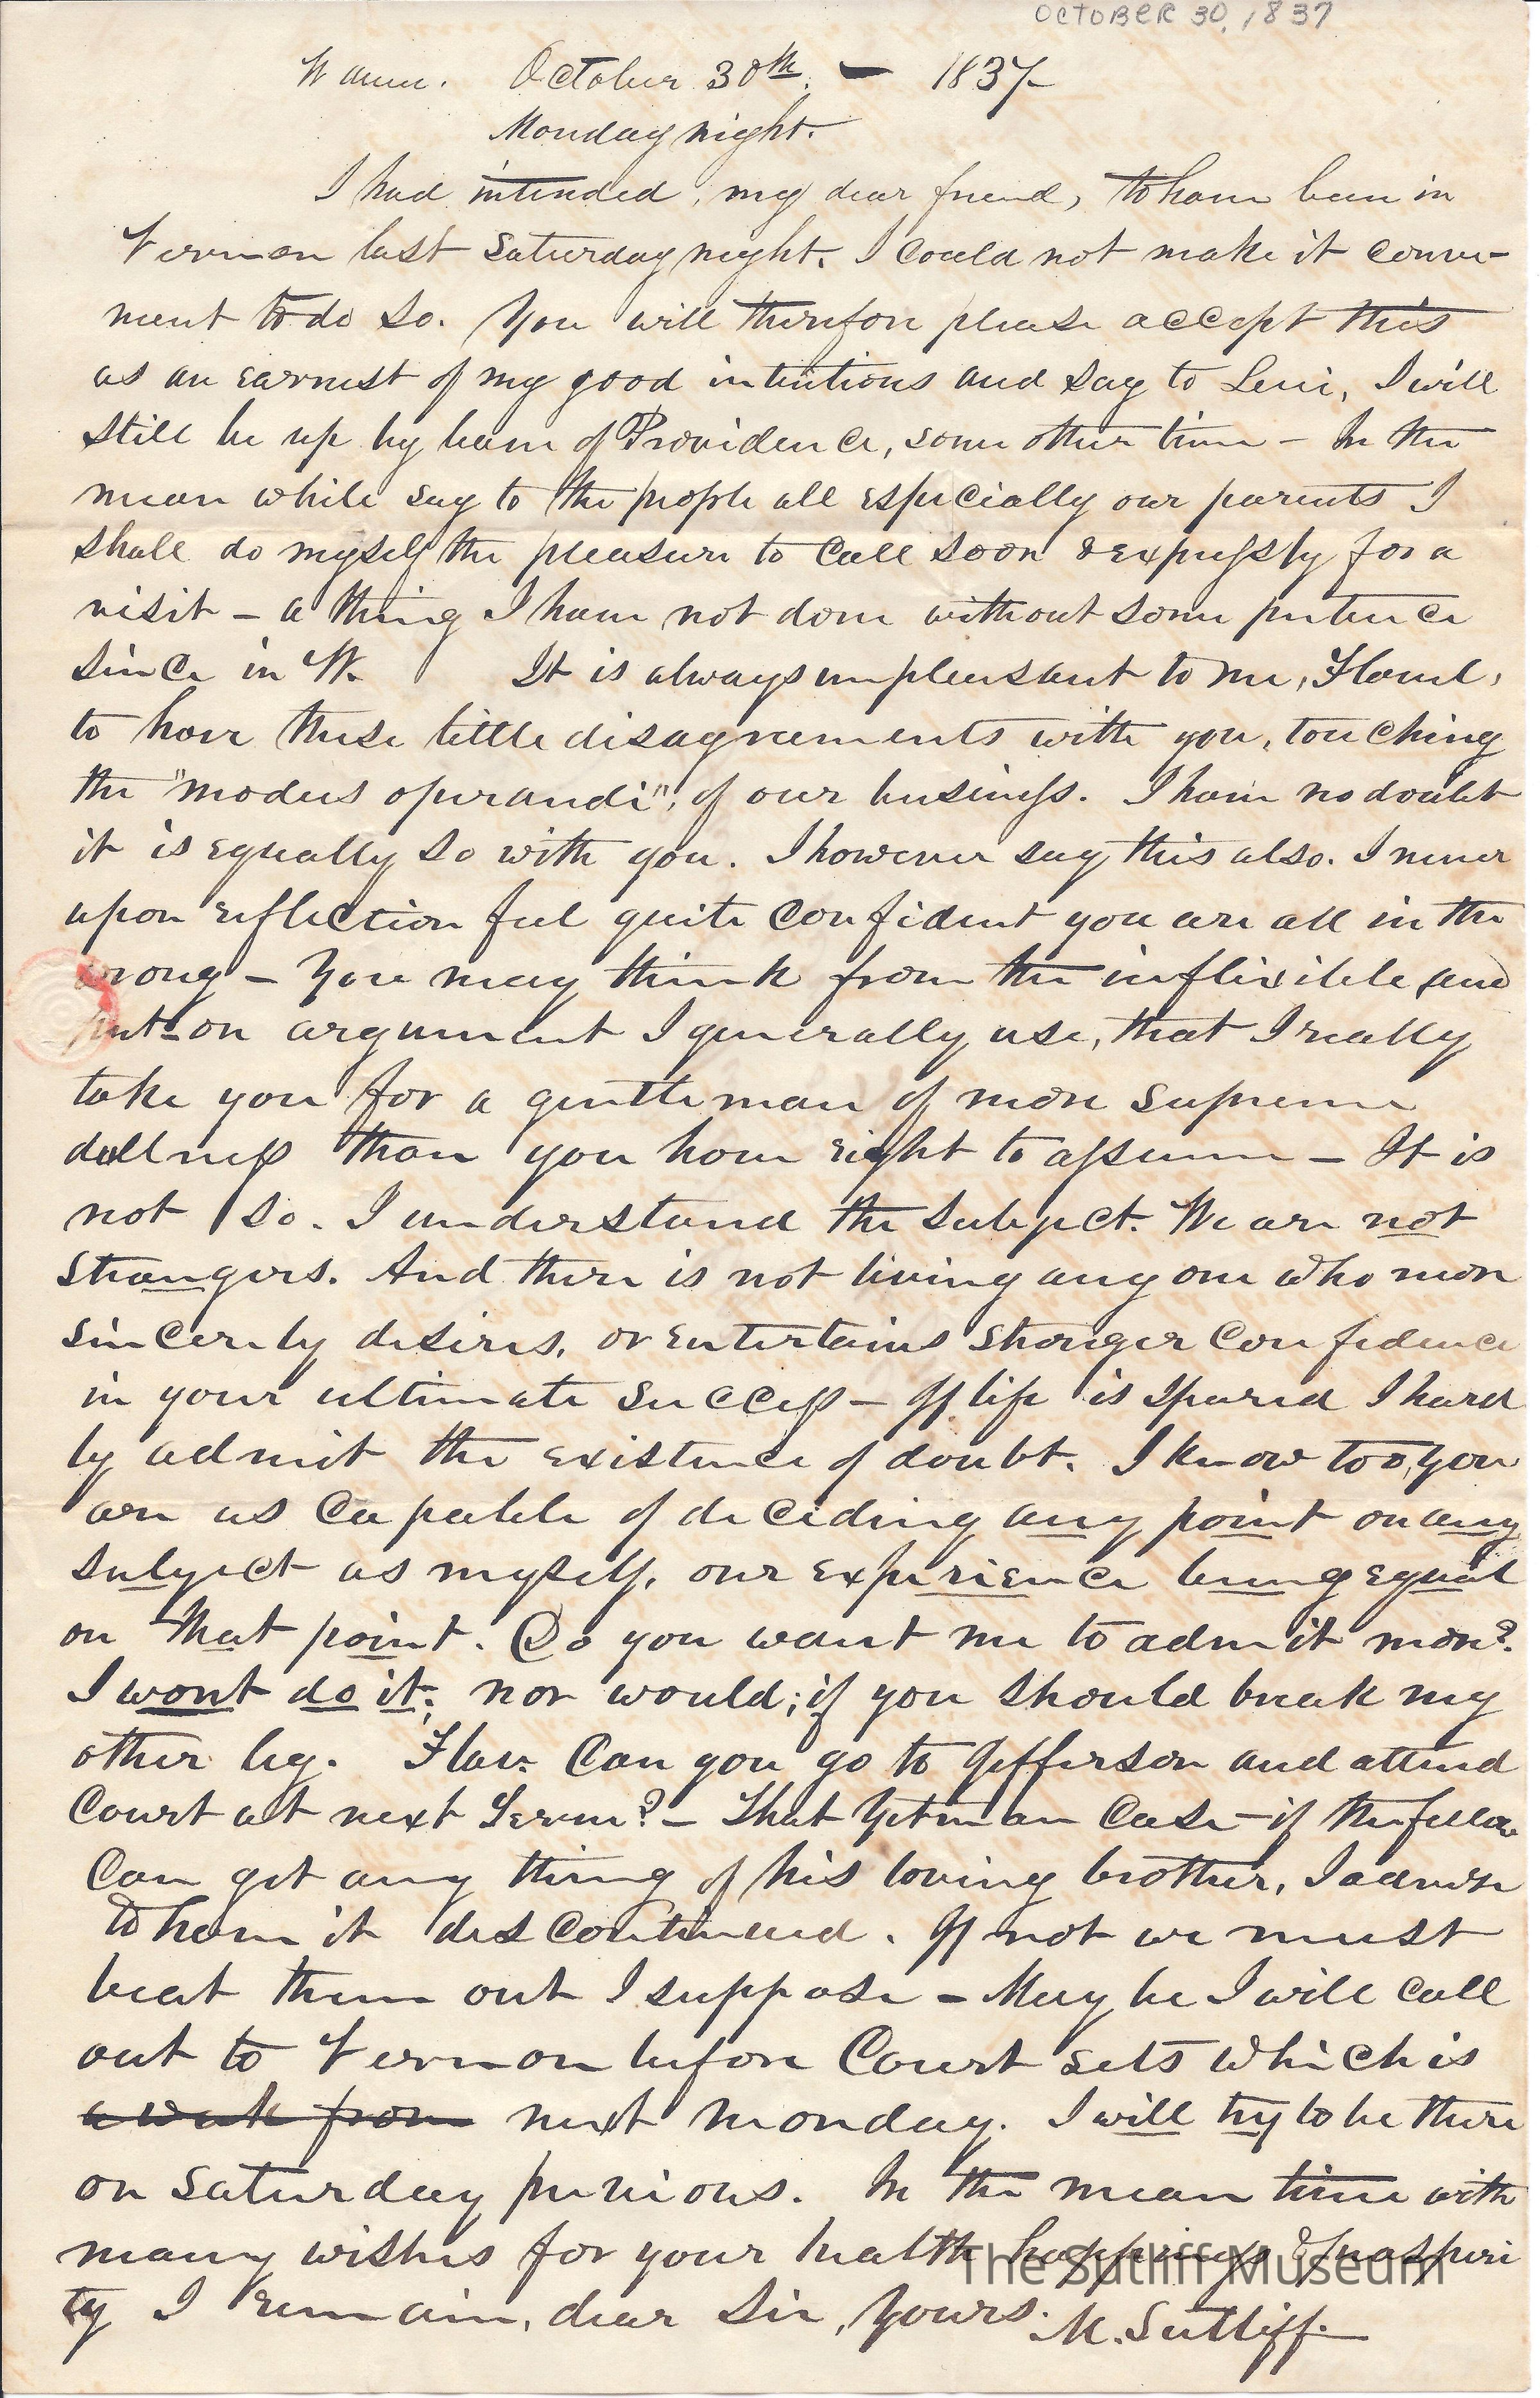 OCTOBER 30, 1837
Warren. October 30th. — 1837
Monday night.
I had intended, my dear friend, to have been in
Vernon last saturday night. I could not make it conve-
nient to do so. You will therefore please accept this
as an earnest of my good intentions and say to Levi, I will
still be up by leave of Providence, some other time – In the
mean while say to the people all especially our parents I
shall do myself the pleasure to call soon & expressly for a
visit – a thing I have not done without some pretence
since in W. It is always unpleasant to me, Flavel,
to have these little disagreements with you, touching
the "modus operandi", of our business. I have no doubt
it is equally so with you. I however say this also. I never
upon reflection feel quite confident you are all in the
wrong – You may think from the inflexible and
put-on argument I generally use, that I really
take you for a gentleman of more supreme
dullness than you have right to assume – It is
not so. I understand the subject. We are not
strangers. And there is not living any one who more
sincerely desires, or entertains stronger confidence
in your ultimate success – If life is spared I hard
ly admit the existence of doubt. I know too, you
are as capable of deciding any point on any
subject as myself, our experience being equal
on that point. Do you want me to admit more?
I wont do it; nor would; if you should break my
other leg. Flav. Can you go to Jefferson and attend
Court at next Term? – That Yetman Case – if the fellow
can get any thing of his loving brother, I advise
to have it discontinued. If not we must
beat them out I suppose – May be I will call
out to Vernon before Court sets which is
a week from next monday. I will try to be there
on saturday previous. In the mean time with
many wishes for your health happiness & prosperi
ty I remain, dear Sir, Yours. M. Sutliff.
The Sutliff Museum